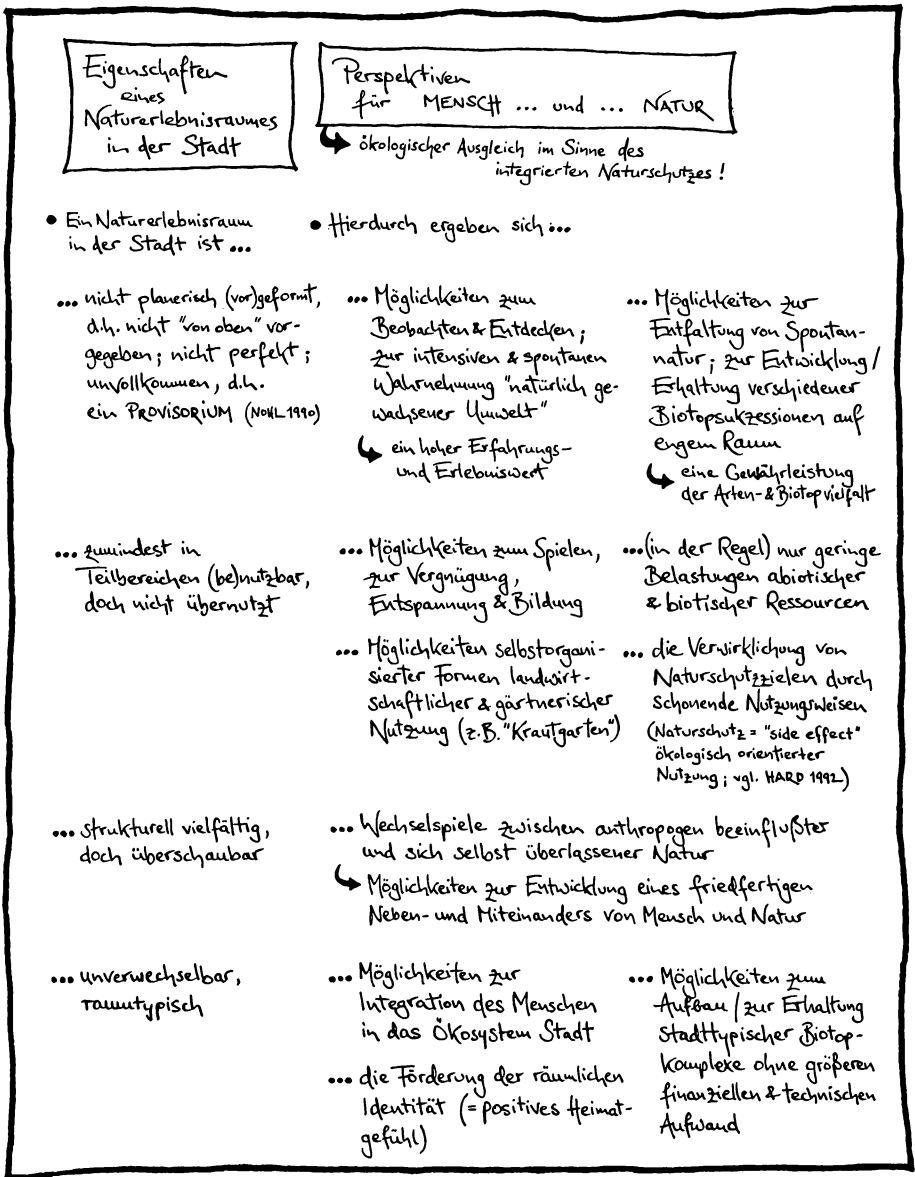 Eigenschaften
eines
Naturerlebnisraumes
in der Stadt
Perspektiven
für MENSCH ... und ... NATUR
ökologischer Ausgleich im Sinne des
integrierten Naturschutzes !
• Ein Naturerlebnisraum
in der Stadt ist ...
• Hierdurch ergeben sich ...
... nicht planerisch (vor)geformt,
d.h. nicht "von oben" vor-
gegeben; nicht perfekt;
unvollkommen, d.h.
ein PROVISORIUM (NOHL 1990)
... Möglichkeiten zum
Beobachten & Entdecken;
zur intensiven & spontanen
Wahrnehmung "natürlich ge-
wachsener Umwelt"
ein hoher Erfahrungs-
und Erlebniswert
... Möglichkeiten zur
Entfaltung von Spontan-
natur; zur Entwicklung/
Erhaltung verschiedener
Biotopsukzessionen auf
engem Raum
eine Gewährleistung
der Arten- & Biotopvielfalt
... zumindest in
Teilbereichen (be)nutzbar,
doch nicht übernutzt
... Möglichkeiten zum Spielen,
zur Vergnügung,
Entspannung & Bildung
... (in der Regel) nur geringe
Belastungen abiotischer
& biotischer Ressourcen
... Möglichkeiten selbstorgani-
sierter Formen landwirt-
schaftlicher & gärtnerischer
Nutzung (z.B. "Krautgarten")
... die Verwirklichung von
Naturschutzzielen durch
schonende Nutzungsweisen
(Naturschutz = "side effect"
ökologisch orientierter
Nutzung; vgl. HARD 1992)
... strukturell vielfältig,
doch überschaubar
... Wechselspiele zwischen anthropogen beeinflußter
und sich selbst überlassener Natur
Möglichkeiten zur Entwicklung eines friedfertigen
Neben- und Miteinanders von Mensch und Natur
... unverwechselbar,
raumtypisch
... Möglichkeiten zur
Integration des Menschen
in das Ökosystem Stadt
... die Förderung der räumlichen
Identität (= positives Heimat-
gefühl)
... Möglichkeiten zum
Aufbau / zur Erhaltung
stadttypischer Biotop-
komplexe ohne größeren
finanziellen & technischen
Aufwand